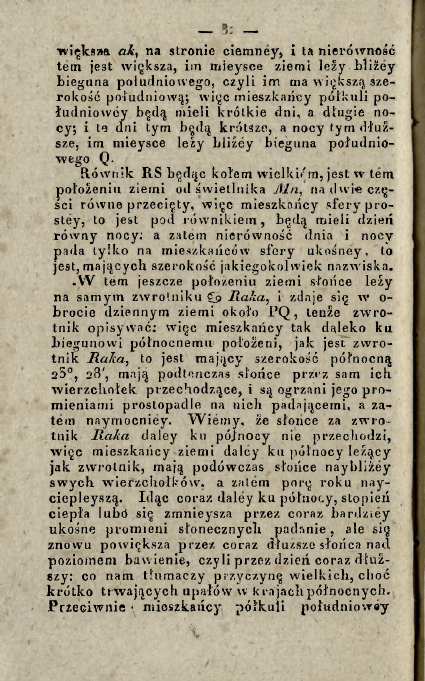 — 8: —
większa ak, na stronie ciemnéy, i ta nierówność
tém jest większa, im mieysce ziemi leży bliżéy
bieguna południowego, czyli im ma większą sze-
rokość południową; więc mieszkańcy półkuli po-
łudniowéy będą mieli krótkie dni, a długie no-
cy; i te dni tym będą krótsze, a nocy tym dłuż-
sze, im mieysce leży bliżéy bieguna południo-
wego Q.
Równik RS będąc kołem wielkiém, jest w tém
położeniu ziemi od świetlnika Mn, na dwie czę-
ści równe przecięty, więc mieszkańcy sfery pro-
stéy, to jest pod równikiem, będą mieli dzień
równy nocy: a zatém nierówność dnia i nocy
pada tylko na mieszkańców sfery ukośnéy, to
jest, mających szerokość jakiegokolwiek nazwiska.
.W tém jeszcze położeniu ziemi słońce leży
na samym zwrotniku ♋ Raka, i zdaje się w o-
brocie dziennym ziemi około PQ, tenże zwro-
tnik opisywać: więc mieszkańcy tak daleko ku
biegunowi północnemu położeni, jak jest zwro-
tnik Raka, to jest mający szerokość północną
23°, 28', mają podtenczas słońce przez sam ich
wierzchołek przechodzące, i są ogrzani jego pro-
mieniami prostopadle na nich padającemi, a za-
tém naymocniéy. Wiémy, że słońce za zwro-
tnik Raka daley ku północy nie przechodzi,
więc mieszkańcy ziemi daléy ku północy leżący
jak zwrotnik, mają podówczas słońce naybliżéy
swych wierzchołków, a zatém porę roku nay-
ciepleyszą. Idąc coraz daléy ku północy, stopień
ciepła lubo się zmnieysza przez coraz bardziéy
ukośne promieni słonecznych padanie, ale się
znowu powiększa przez coraz dłuższe słońca nad
poziomem bawienie, czyli przez dzień coraz dłuż-
szy: co nam tłumaczy przyczynę wielkich, choć
krótko trwających upałów w krajach północnych.
Przeciwnie mieszkańcy półkuli południowéy